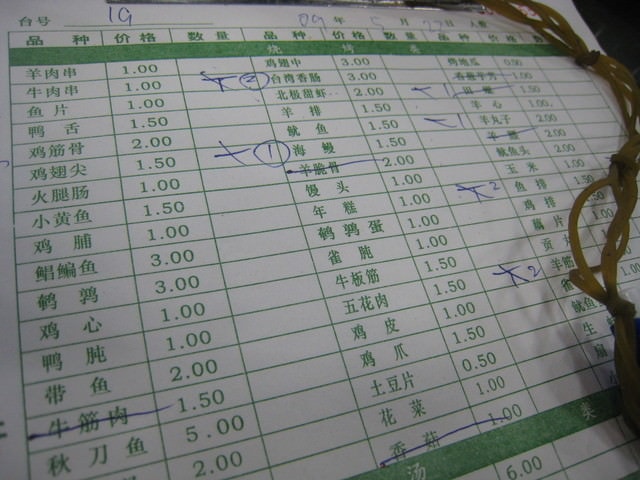 台号 19 09 年 5 月 27 日 人数
品 种 价 格 数 量 品 种 价 格 数 量 品 种 价 格 数
烧 烤 类
羊肉串 1.00 鸡翅中 3.00 烤地瓜 0.00
牛肉串 1.00 台湾香肠 3.00 1.00
鱼 片 1.00 北极甜虾 2.00
鸭 舌 1.50 羊 排 1.50 羊 心 1.00
鸡筋骨 2.00 鱿 鱼 1.50 羊丸子 2.00
鸡翅尖 1.50 海 鳗 1.50 2.00
火腿肠 1.00 羊脆骨 2.00 鱿鱼头 2.00
小黄鱼 1.50 馒 头 1.00 玉 米 1.00
鸡 脯 1.00 年 糕 1.00 鱼 排 1.50
鲳鳊鱼 3.00 鹌鹑蛋 1.00 鸡 排 1.50
鹌 鹑 3.00 雀 肫 1.00 藕 片 1.00
鸡 心 1.00 牛板筋 1.50 贡
鸭 肫 1.00 五花肉 1.50 羊筋
带 鱼 2.00 鸡 皮 1.00
牛筋肉 1.50 鸡 爪 1.50 鱿鱼
秋刀鱼 5.00 土豆片 0.50 生
2.00 花 菜 1.00
香 菇 1.00
汤 类
6.00